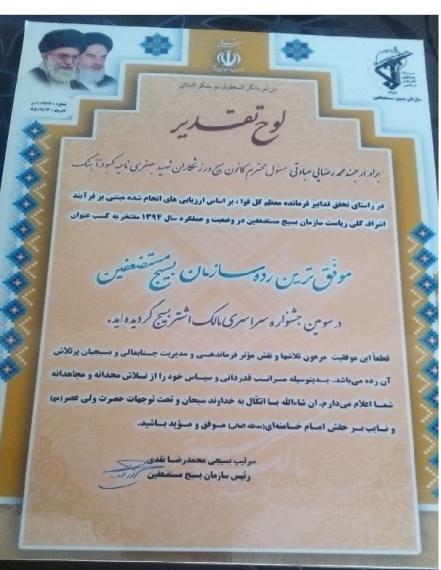 من لم یشکر المخلوق لم یشکر الخالق
سازمان بسیج مستضعفین
لوح تقدیر
برادر ارجمند محمد رضایی عبادتی مسئول محترم کانون بسیج ورزشکاران شهید جعفری ناحیه کبودرآهنگ
در راستای تحقق تدابیر فرمانده معظم کل قوا، بر اساس ارزیابی های انجام شده مبتنی بر فرآیند
اشراف کلی ریاست سازمان بسیج مستضعفین در وضعیت و عملکرد سال ۱۳۹۴ مفتخر به کسب عنوان
موفق ترین رده سازمان بسیج مستضعفین
در سومین جشنواره سراسری مالک اشتر بسیج گردیده اید.
قطعاً این موفقیت مرهون تلاشها و نقش مؤثر فرماندهی و مدیریت جنابعالی و بسیجیان پرتلاش
آن رده می‌باشد. بدینوسیله مراتب قدردانی و سپاس خود را از تلاش مجدانه و مجاهدانه
شما اعلام می‌دارم. ان شاءالله با اتکال به خداوند سبحان و تحت توجهات حضرت ولی عصر(عج)
و نایب بر حقش امام خامنه‌ای(مدظله العالی) موفق و مؤید باشید.
سرتیپ بسیجی محمدرضا نقدی
رئیس سازمان بسیج مستضعفین